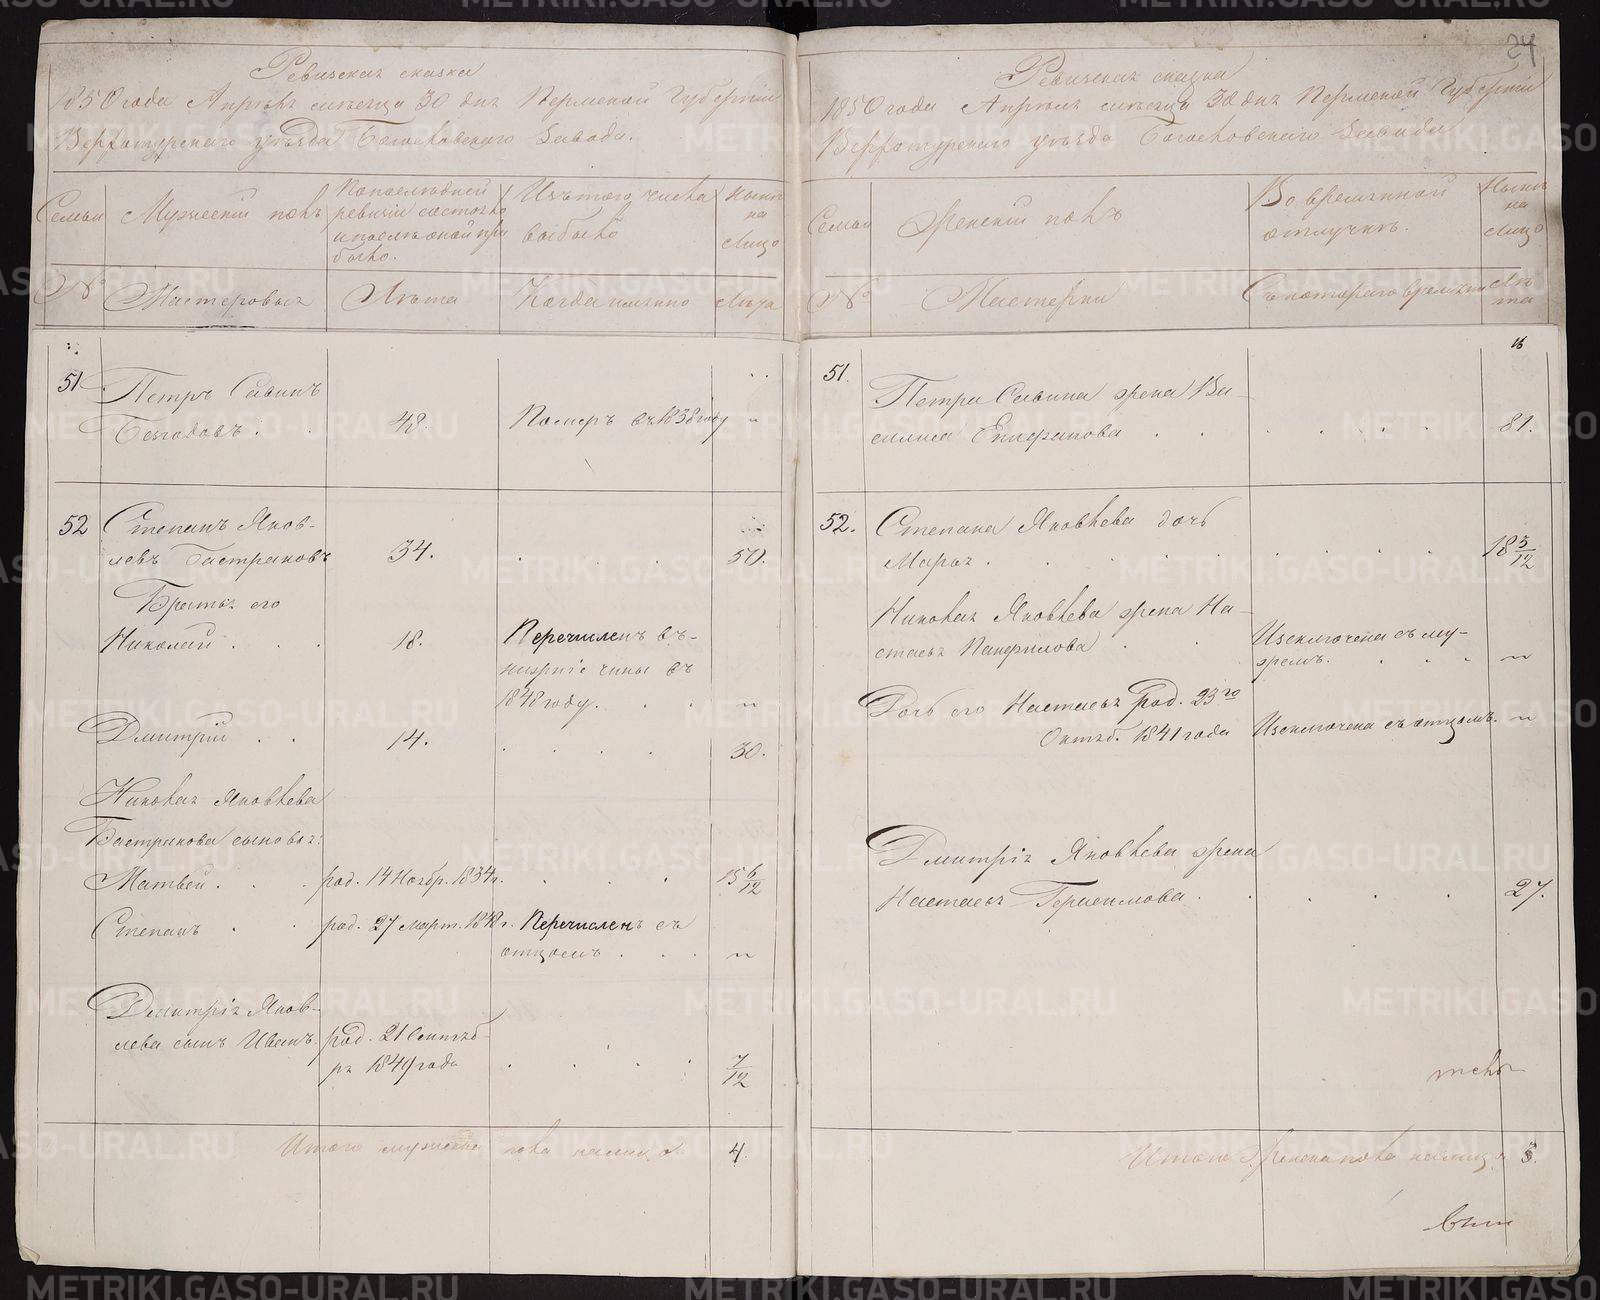 24
Ревизская сказка
1850 года Апреля месяца 30 дня Пермской Губернии
Верхотурскаго уезда Богословскаго Завода.
Семьи
Мужеский полъ
По последней
ревизии состояло
и после оной при
было.
Изъ того числа
выбыло
Ныне
на
лицо
№
Мастеровыя
Лета
Когда именно
Лета
51
Петръ Савинъ
48.
Померъ въ 1838 году
"
52
Степанъ Яков-
левъ Бастраковъ
34.
50.
Братья его
Николай
18.
Перечисленъ въ-
нижніе чины въ
1848 году.
"
Дмитрій
14.
30.
Николая Яковлева
Бастракова сыновья:
Матвей
род. 14 Ноябр. 1834 г.
15 6/12
Степанъ
род. 27 Март. 1848 г.
Перечисленъ съ
отцомъ
"
Дмитрія Яков-
лева сынъ Иванъ
род. 21 Сентяб-
ря 1849 года
7/12
Итого мужеска пола налицо
4.
Ревизская сказка
1850 года Апреля месяца 30 дня Пермской Губернии
Верхотурскаго уезда Богословскаго Завода
Семьи
Женскій полъ
Во временной
отлучке.
Ныне
на
лицо
№
Мастерки
Съ котораго времени
Ле
та
51.
Петра Савина жена Ва-
силиса
81.
52.
Степана Яковлева дочь
Марья
18 5/12
Николая Яковлева жена На-
стасья Панфилова
Изключена съ му-
жемъ.
"
Дочь его Настасья род. 23го
Октяб. 1841 года
Изключена съ отцомъ.
"
Дмитрія Яковлева жена
Настасья Герасимова
27.
Итого женска пола налицо
3.
METRIKI.GASO-URAL.RU